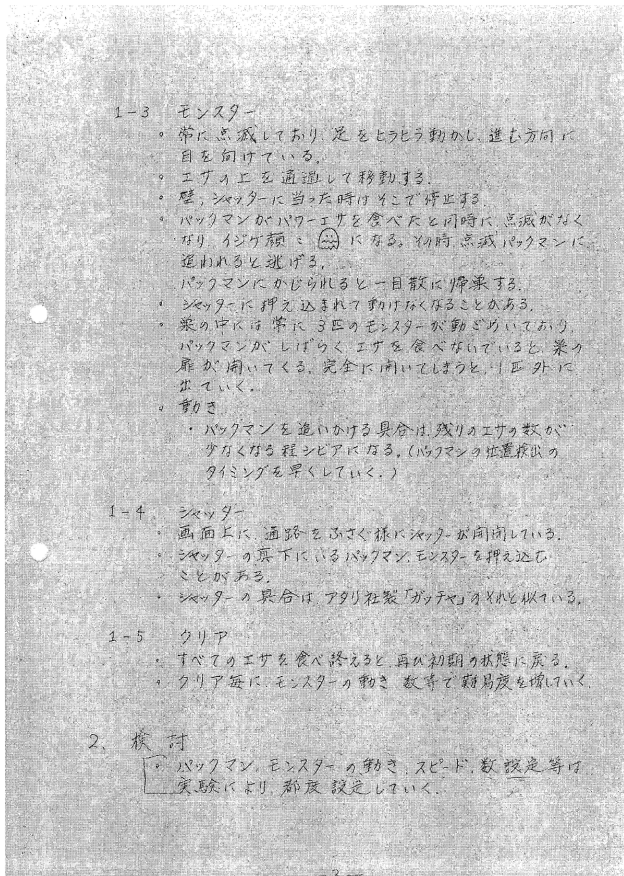 1-3 モンスター
。常に点滅しており、足をヒラヒラ動かし、進む方向に
目を向けている。
。エサの上を通過して移動する。
。壁、シャッターに当った時はそこで停止する。
。パックマンがパワーエサを食べたと同時に点滅がなく
なり、イジケ顔: になる。その時点滅パックマンに
追われると逃げる。
パックマンにかじられると一目散に帰巣する。
。シャッターに押え込まれて動けなくなることがある。
。巣の中には常に3匹のモンスターが動めいており、
パックマンがしばらくエサを食べないでいると、巣の
扉が開いてくる。完全に開いてしまうと、1匹外に
出ていく。
。動き
・パックマンを追いかける具合は、残りのエサの数が
少なくなる程シビアになる。(パックマンの位置検出の
タイミングを早くしていく。)
1-4 シャッター
。画面上に、通路をふさぐ様にシャッターが開閉している。
。シャッターの真下にいるパックマン、モンスターを押え込む
ことがある。
。シャッターの具合は、アタリ社製「ガッチャ」のそれと似ている。
1-5 クリア
。すべてのエサを食べ終えると、再び初期の状態に戻る。
。クリア毎に、モンスターの動き、数等で難易度を増していく
2. 検討
。パックマン、モンスターの動き、スピード、数設定等は
実験により、都度設定していく。